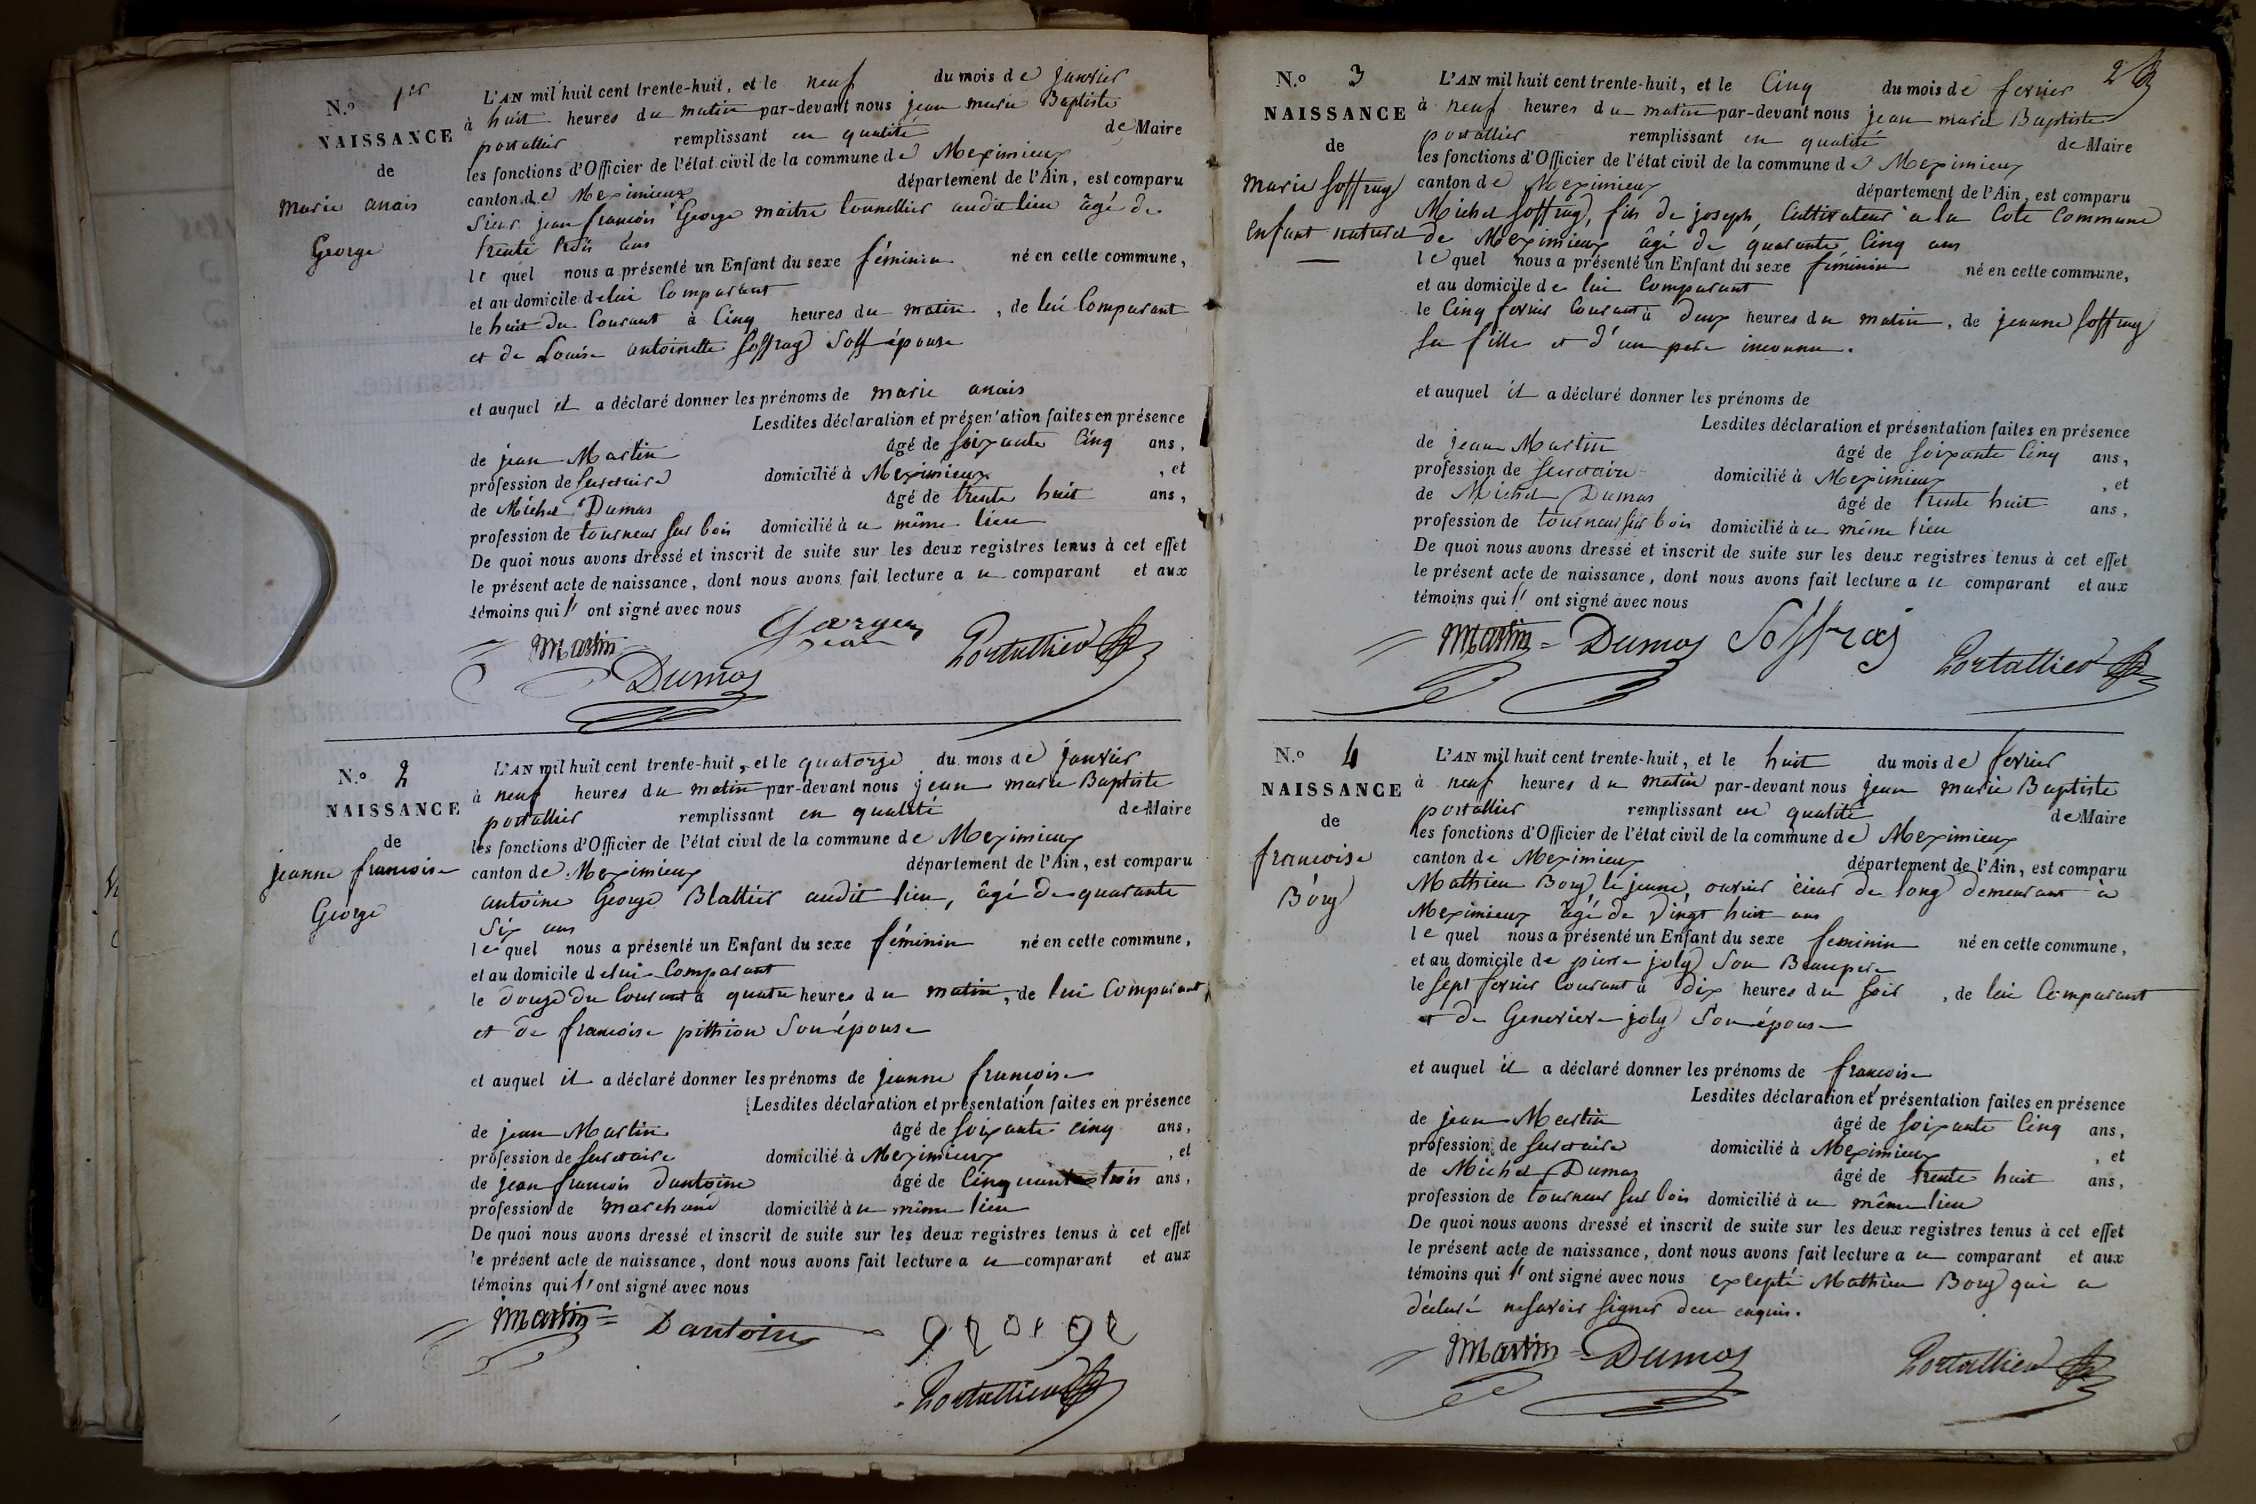 N.o 1er
NAISSANCE
de
marie anais
George
L'AN mil huit cent trente-huit, et le neuf du mois de janvier
à huit heures du matin par-devant nous jean marie Baptiste
portallier remplissant en qualité de Maire
les fonctions d'Officier de l'état civil de la commune de Meximieux
canton de Meximieux département de l'Ain, est comparu
Sieur jean francois George maitre tonnellier audit lieu âgé de
trente trois ans
le quel nous a présenté un Enfant du sexe féminin né en cette commune,
et au domicile de lui Comparant
le huit du Courant à Cinq heures du matin, de lui Comparant
et de Louise antoinette Soffray Son épouse
et auquel il a déclaré donner les prénoms de marie anais
Lesdites déclaration et présentation faites en présence
de jean Martin âgé de Soixante Cinq ans,
profession de Secretaire domicilié à Meximieux, et
de Michel Dumas âgé de trente huit ans,
profession de tourneur Sur bois domicilié à u même lieu
De quoi nous avons dressé et inscrit de suite sur les deux registres tenus à cet effet
le présent acte de naissance, dont nous avons fait lecture a u comparant et aux
témoins qui l' ont signé avec nous
Martin Dumas Portallier
N.o 2
NAISSANCE
de
jeanne francoise
George
L'AN mil huit cent trente-huit, et le quatorze du mois de janvier
à neuf heures du matin par-devant nous jean marie Baptiste
portallier remplissant en qualité de Maire
les fonctions d'Officier de l'état civil de la commune de Meximieux
canton de Meximieux département de l'Ain, est comparu
antoine George Blattier audit lieu, âgé de quarante
Six ans
le quel nous a présenté un Enfant du sexe féminin né en cette commune,
et au domicile de lui Comparant
le douze du Courant à quatre heures du matin, de lui Comparant,
et de francoise pithion Son épouse
et auquel il a déclaré donner les prénoms de jeanne francoise
Lesdites déclaration et présentation faites en présence
de jean Martin âgé de Soixante cinq ans,
profession de Secretaire domicilié à Meximieux, et
de jean francois dantoine âgé de Cinquante trois ans,
profession de marchand domicilié à u même lieu
De quoi nous avons dressé et inscrit de suite sur les deux registres tenus à cet effet
le présent acte de naissance, dont nous avons fait lecture a u comparant et aux
témoins qui l' ont signé avec nous
Martin Dantoine george
Portallier
2
N.o 3
NAISSANCE
de
Marie Soffray
Enfant naturel
L'AN mil huit cent trente-huit, et le Cinq du mois de fevrier
à neuf heures du matin par-devant nous jean marie Baptiste
portallier remplissant en qualité de Maire
les fonctions d'Officier de l'état civil de la commune de Meximieux
canton de Meximieux département de l'Ain, est comparu
Michel Soffray, fils de joseph, Cultivateur a la Cote Commune
de Meximieux âgé de quarante Cinq ans
le quel nous a présenté un Enfant du sexe féminin né en cette commune,
et au domicile de lui Comparant
le Cinq fevrier Courant à deux heures du matin, de jeanne Soffray
Sa fille et d'un pere inconnu.
et auquel il a déclaré donner les prénoms de
Lesdites déclaration et présentation faites en présence
de jean Martin âgé de Soixante Cinq ans,
profession de Secretaire domicilié à Meximieux, et
de Michel Dumas âgé de trente huit ans,
profession de tourneur Sur bois domicilié à u même lieu
De quoi nous avons dressé et inscrit de suite sur les deux registres tenus à cet effet
le présent acte de naissance, dont nous avons fait lecture a u comparant et aux
témoins qui l' ont signé avec nous
Martin Dumas Soffraj Portallier
N.o 4
NAISSANCE
de
francoise
Bory
L'AN mil huit cent trente-huit, et le huit du mois de fevrier
à neuf heures du matin par-devant nous jean marie Baptiste
portallier remplissant en qualité de Maire
les fonctions d'Officier de l'état civil de la commune de Meximieux
canton de Meximieux département de l'Ain, est comparu
Mathieu Bory le jeune, ouvrier cieur de long demeurant à
Meximieux âgé de vingt huit ans
le quel nous a présenté un Enfant du sexe feminin né en cette commune,
et au domicile de pierre joly Son Beaupere
le Sept fevrier Courant à dix heures du Soir, de lui Comparant
et de Genevieve joly Son épouse
et auquel il a déclaré donner les prénoms de francoise
Lesdites déclaration et présentation faites en présence
de jean Martin âgé de Soixante Cinq ans,
profession de Secretaire domicilié à Meximieux, et
de Michel Dumas âgé de trente huit ans,
profession de tourneur Sur bois domicilié à u même lieu
De quoi nous avons dressé et inscrit de suite sur les deux registres tenus à cet effet
le présent acte de naissance, dont nous avons fait lecture a u comparant et aux
témoins qui l' ont signé avec nous excepté Mathieu Bory qui a
déclaré ne savoir signer de ce enquis.
Martin Dumas Portallier